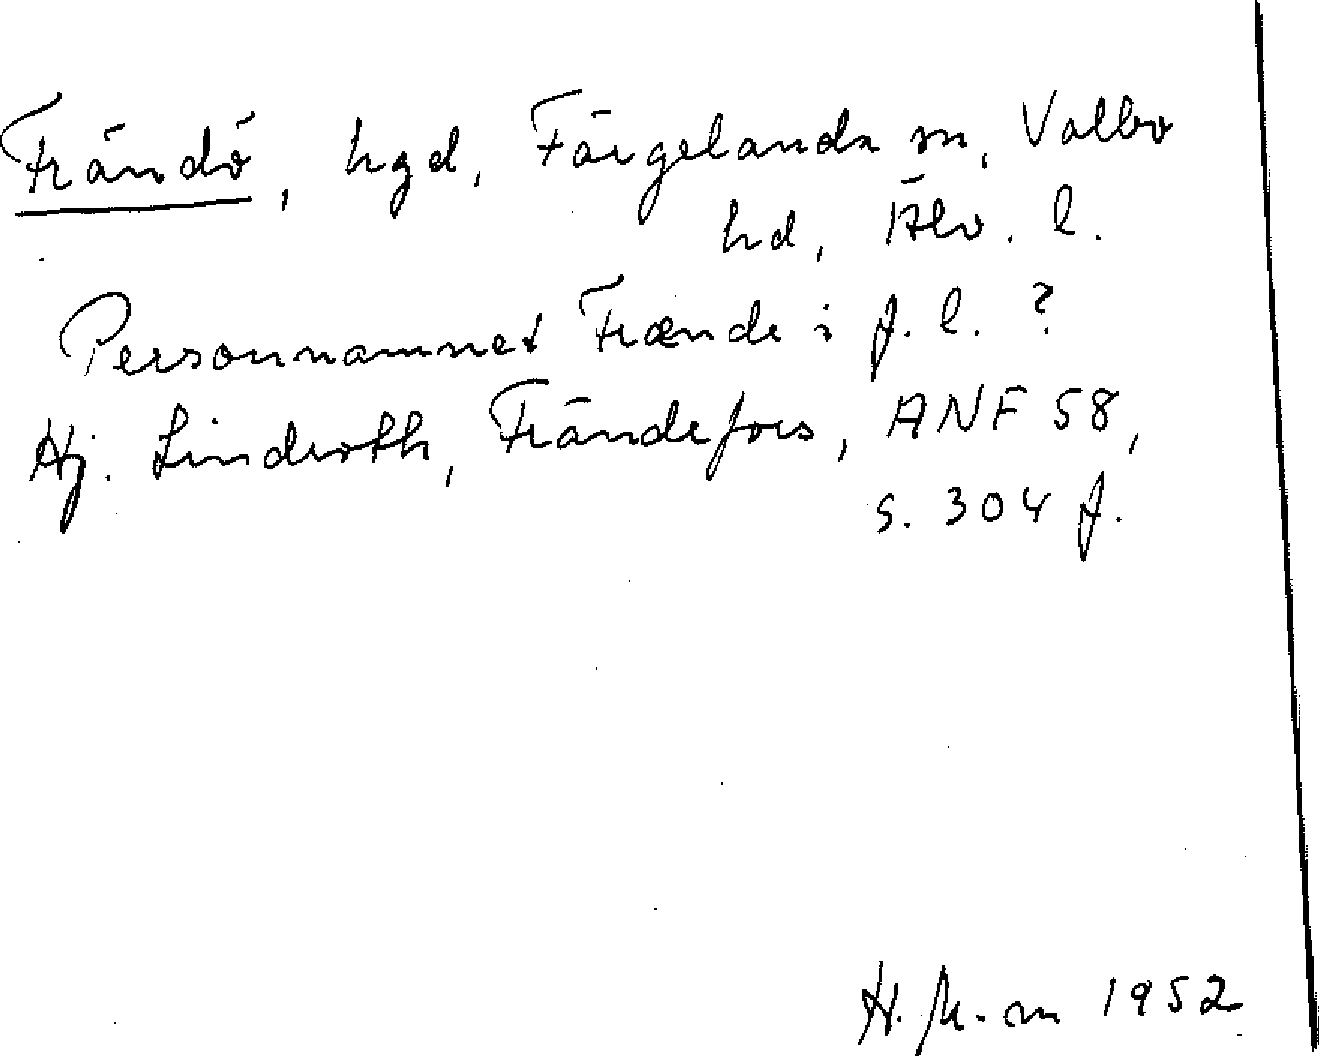 Frändö, hgd, Färgelanda sn, Valbo
hd, Älv. l.
Personnamnet Frænde i f. l. ?
Hj. Lindroth, Frändefors, ANF 58,
s. 304 f.
H. M-m 1952